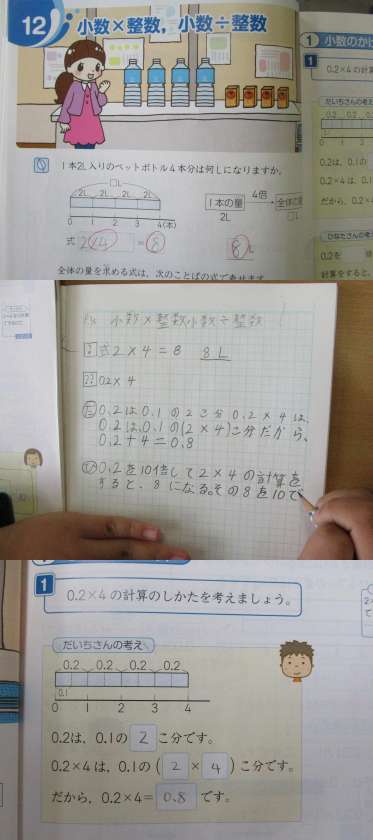 12 小数×整数，小数÷整数
1本2L入りのペットボトル4本分は何Lになりますか。
□L
2L 2L 2L 2L
0 1 2 3 4(本)
1本の量 4倍
2L
□L
式 2×4 = 8 8 L
全体の量を求める式は、次のことばの式で表せます
1 小数のか
1
0.2×4の計
だいちさんの考え
0.2 0.2
0.2は、0.1の
0.2×4は、0.1
だから、0.2×4
ひなたさんの考え
0.2を
計算をすると、
小数×整数 小数÷整数
式 2×4=8 8L
0.2×4
だ 0.2は0.1の2こ分 0.2×4は、
0.2は0.1の(2×4)こ分だから、
0.2+4=0.8
ひ 0.2を10倍して2×4の計算を
すると、8になる。その8を10で
1 0.2×4の計算のしかたを考えましょう。
だいちさんの考え
0.2 0.2 0.2 0.2
0.1
0 1 2 3 4
0.2は、0.1の 2 こ分です。
0.2×4は、0.1の( 2 × 4 )こ分です。
だから、0.2×4= 0.8 です。